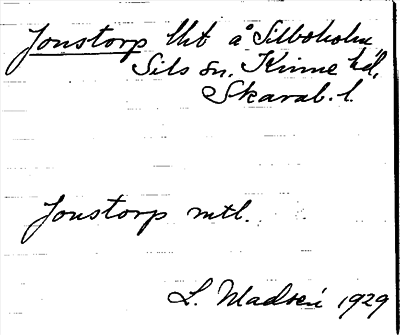 Jonstorp lht å Silboholm,
Sils sn, Kinne hd,
Skarab. l.
Jonstorp mtl.
L. Madsén 1929